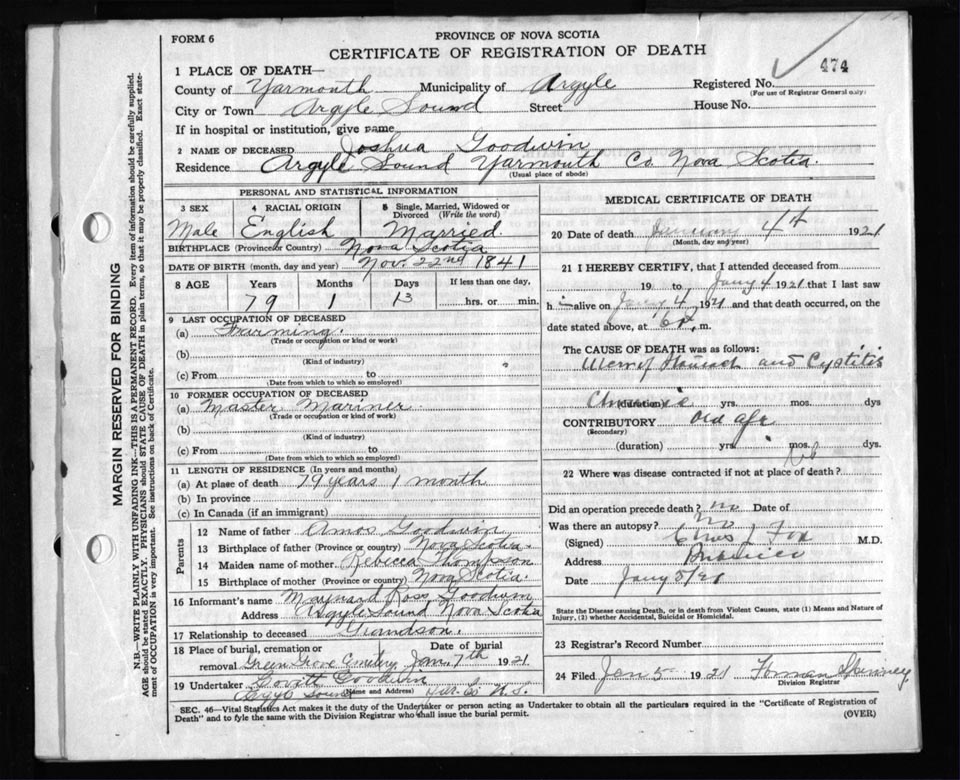 FORM 6
PROVINCE OF NOVA SCOTIA
CERTIFICATE OF REGISTRATION OF DEATH
474
1 PLACE OF DEATH—
County of Yarmouth Municipality of Argyle Registered No.
(For use of Registrar General only)
City or Town Argyle Sound Street House No.
If in hospital or institution, give name
2 NAME OF DECEASED Joshua Goodwin
Residence Argyle Sound Yarmouth Co. Nova Scotia.
(Usual place of abode)
PERSONAL AND STATISTICAL INFORMATION
3 SEX 4 RACIAL ORIGIN 5 Single, Married, Widowed or Divorced (Write the word)
Male English Married.
BIRTHPLACE (Province or Country) Nova Scotia
DATE OF BIRTH (month, day and year) Nov. 22nd 1841
8 AGE Years Months Days If less than one day,
79 1 13 hrs. or min.
9 LAST OCCUPATION OF DECEASED
(a) Farming.
(Trade or occupation or kind or work)
(b)
(Kind of industry)
(c) From to
(Date from which to which so employed)
10 FORMER OCCUPATION OF DECEASED
(a) Master Mariner
(Trade or occupation or kind of work)
(b)
(Kind of industry)
(c) From to
(Date from which to which so employed)
11 LENGTH OF RESIDENCE (In years and months)
(a) At place of death 79 years 1 month
(b) In province
(c) In Canada (if an immigrant)
Parents
12 Name of father Amos Goodwin
13 Birthplace of father (Province or country) Nova Scotia.
14 Maiden name of mother Rebecca Thompson
15 Birthplace of mother (Province or country) Nova Scotia.
16 Informant's name Maynard Ross Goodwin
Address Argyle Sound Nova Scotia
17 Relationship to deceased Grandson.
18 Place of burial, cremation or removal Date of burial
Green Grove Cemetery Jan. 7th 1921
19 Undertaker Lovitt Goodwin
(Name and Address)
Argyle Sound Yar. Co N.S.
MEDICAL CERTIFICATE OF DEATH
20 Date of death January 4th 1921
(Month, day and year)
21 I HEREBY CERTIFY, that I attended deceased from
19 to Jany 4 1921 that I last saw
h im alive on Jany 4 1921 and that death occurred, on the
date stated above, at 6 p. m.
The CAUSE OF DEATH was as follows:
and Cystitis
(duration) yrs. mos. dys
CONTRIBUTORY Old age
(Secondary)
(duration) yrs. mos. dys.
22 Where was disease contracted if not at place of death?
Did an operation precede death? no Date of
Was there an autopsy? No
(Signed) Fox M.D.
Address Pubnico
Date Jany 5/21
State the Disease causing Death, or in death from Violent Causes, state (1) Means and Nature of Injury, (2) whether Accidental, Suicidal or Homicidal.
23 Registrar's Record Number
24 Filed Jan 5 1921
Division Registrar
SEC. 46—Vital Statistics Act makes it the duty of the Undertaker or person acting as Undertaker to obtain all the particulars required in the "Certificate of Registration of
Death" and to fyle the same with the Division Registrar who shall issue the burial permit.
(OVER)
MARGIN RESERVED FOR BINDING
N.B.—WRITE PLAINLY WITH UNFADING INK—THIS IS A PERMANENT RECORD. Every item of information should be carefully supplied.
AGE should be stated EXACTLY. PHYSICIANS should STATE CAUSE OF DEATH in plain terms, so that it may be properly classified. Exact statement of OCCUPATION is very important. See instructions on back of Certificate.